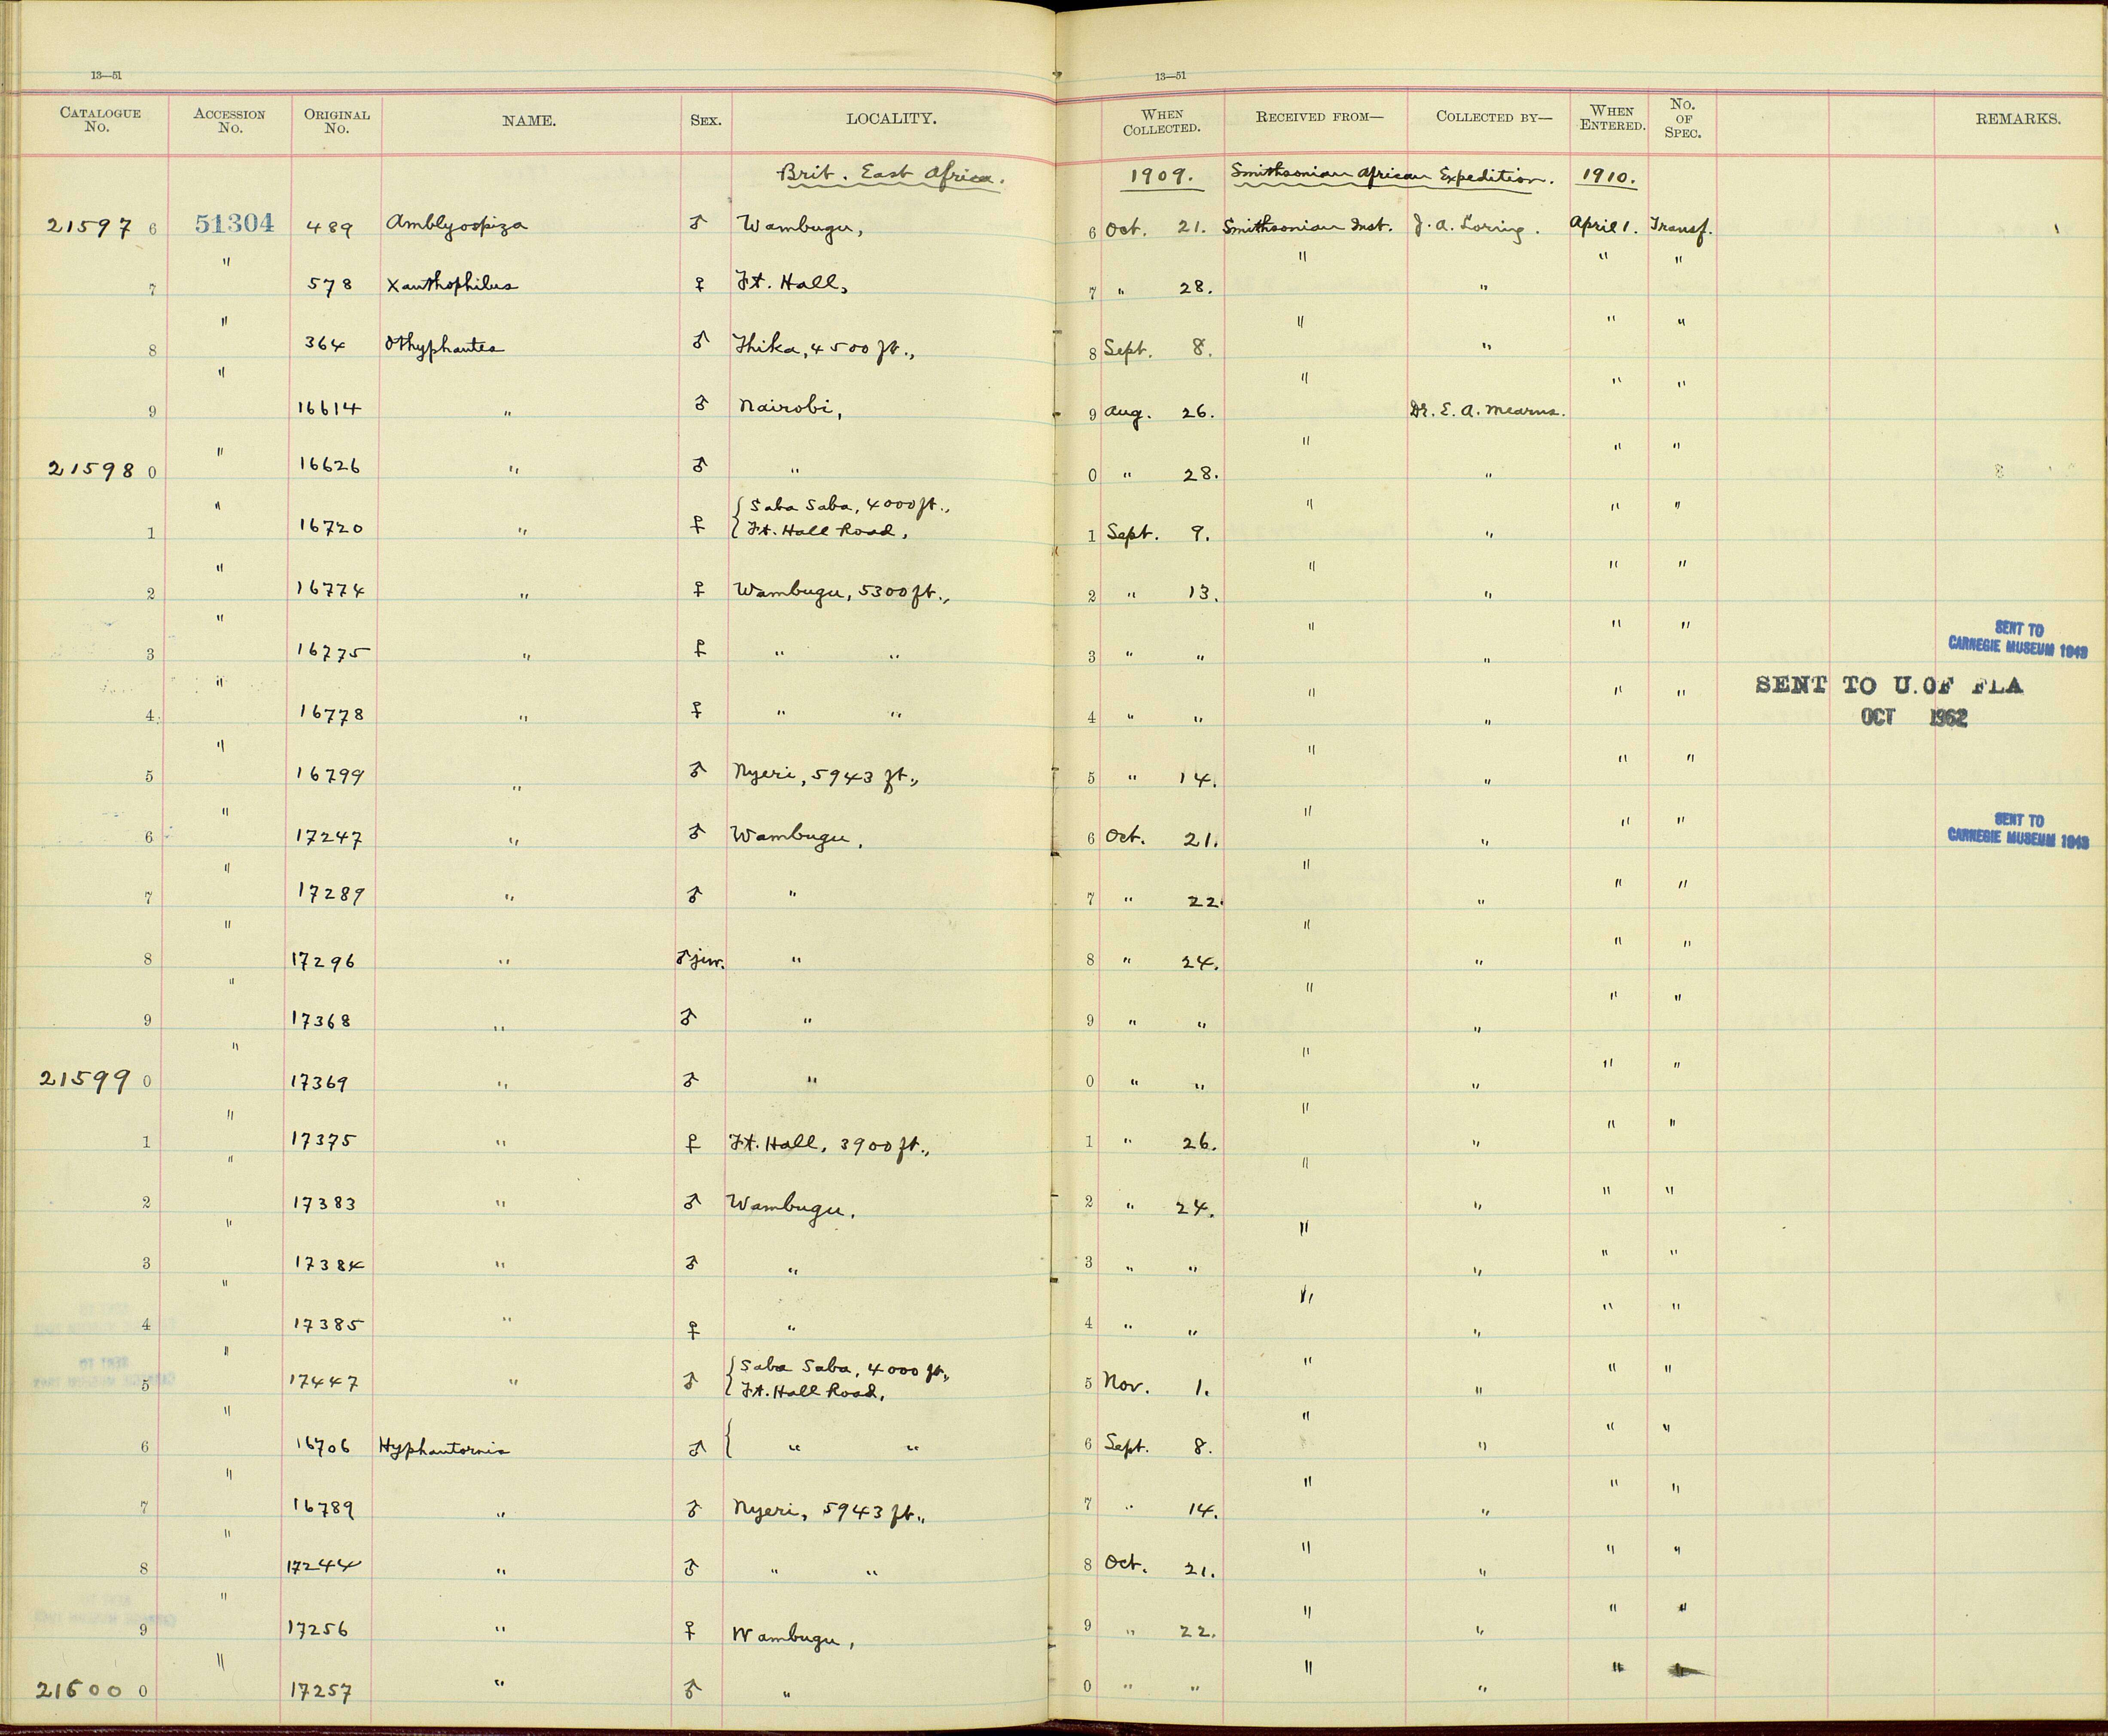 13—51 13—51
CATALOGUE No. ACCESSION No. ORIGINAL No. NAME. SEX. LOCALITY. WHEN COLLECTED. RECEIVED FROM— COLLECTED BY— WHEN ENTERED. No. OF SPEC. REMARKS.
Brit. East Africa. 1909. Smithsonian African Expedition. 1910.
21597 6 51304 489 Amblyospiza ♂ Wambugu, 6 Oct. 21. Smithsonian Inst. J. A. Loring. April 1. Transf.
7 " 578 Xanthophilus ♀ Ft. Hall, 7 " 28. " " " "
8 " 364 Othyphantes ♂ Thika, 4500 ft., 8 Sept. 8. " " " "
9 " 16614 " ♂ Nairobi, 9 Aug. 26. " Dr. E. A. Mearns. " "
21598 0 " 16626 " ♂ " 0 " 28. " " " "
1 " 16720 " ♀ { Saba Saba, 4000 ft., Ft. Hall Road, 1 Sept. 9. " " " "
2 " 16774 " ♀ Wambugu, 5300 ft., 2 " 13. " " " "
3 " 16775 " ♀ " " 3 " " " " " " SENT TO CARNEGIE MUSEUM 1949
4 " 16778 " ♀ " " 4 " " " " " " SENT TO U. OF FLA OCT 1962
5 " 16799 " ♂ Nyeri, 5943 ft., 5 " 14. " " " "
6 " 17247 " ♂ Wambugu, 6 Oct. 21. " " " " SENT TO CARNEGIE MUSEUM 1949
7 " 17289 " ♂ " 7 " 22. " " " "
8 " 17296 " ♂ juv. " 8 " 24. " " " "
9 " 17368 " ♂ " 9 " " " " " "
21599 0 " 17369 " ♂ " 0 " " " " " "
1 " 17375 " ♀ Ft. Hall, 3900 ft., 1 " 26. " " " "
2 " 17383 " ♂ Wambugu. 2 " 24. " " " "
3 " 17384 " ♂ " 3 " " " " " "
4 " 17385 " ♀ " 4 " " " " " "
5 " 17447 " ♂ { Saba Saba, 4000 ft., Ft. Hall Road, 5 Nov. 1. " " " "
6 " 16706 Hyphantornis ♂ { " " 6 Sept. 8. " " " "
7 " 16789 " ♂ Nyeri, 5943 ft., 7 " 14. " " " "
8 " 17244 " ♂ " " 8 Oct. 21. " " " "
9 " 17256 " ♀ Wambugu, 9 " 22. " " " "
21600 0 " 17257 " ♂ " 0 " " " " "